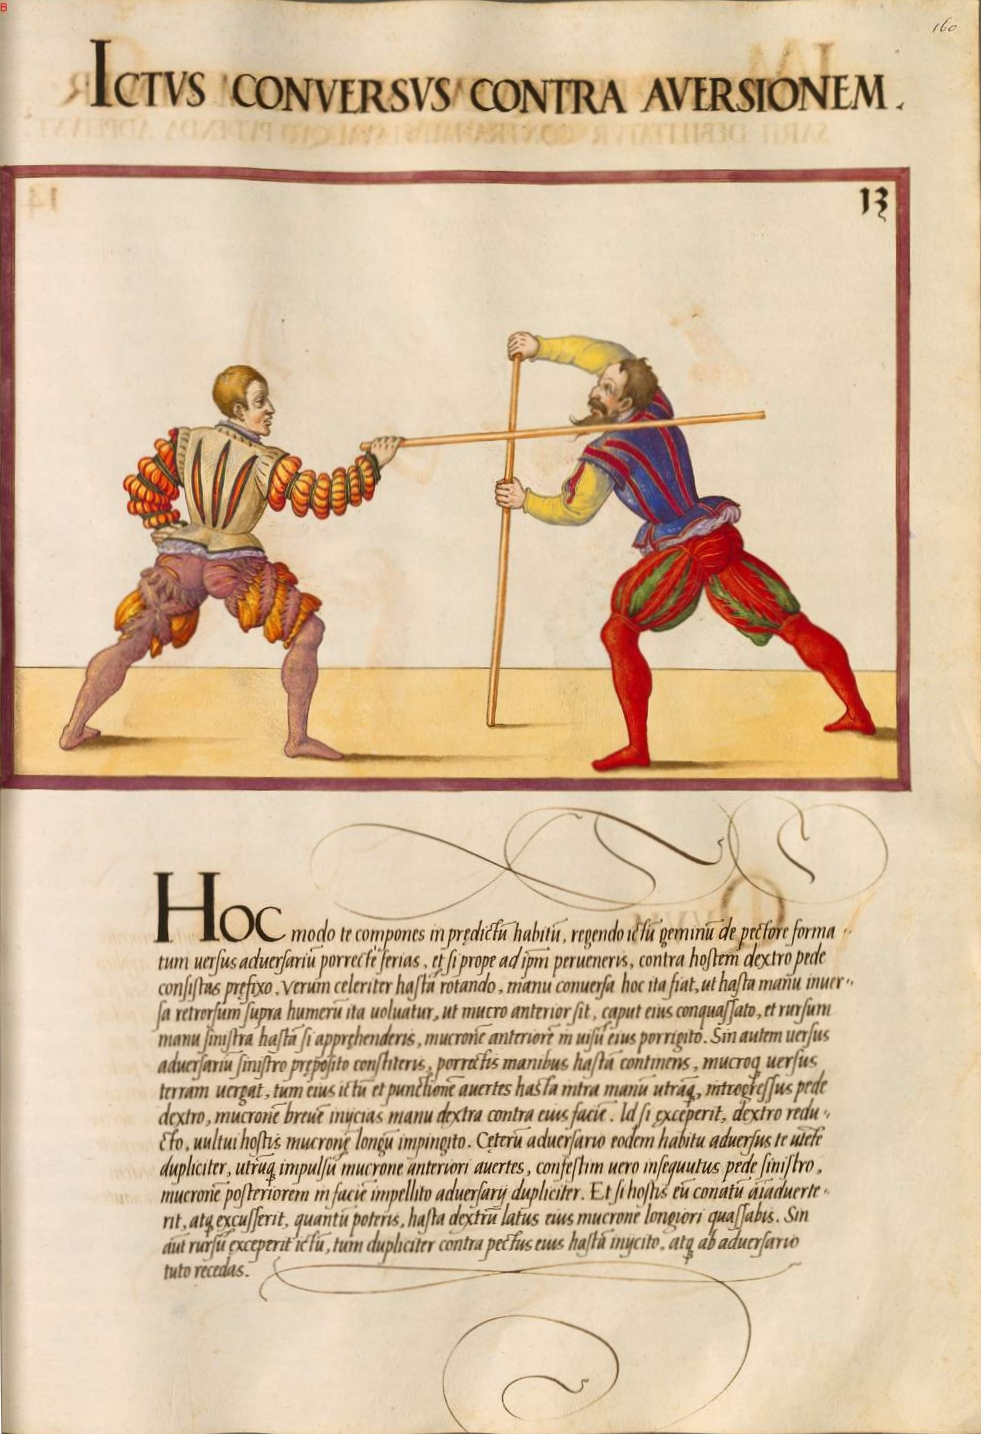 B
160
ICTVS CONVERSVS CONTRA AVERSIONEM.
13
HOC modo te compones in prędictũ habitũ, regendo ictũ geminũ de pectore forma-
tum uersus aduersariũ porrecte ferias, et si prope ad ipm̃ perueneris, contra hostem dextro pede
consistas pręfixo. Verum celeriter hastã rotando, manu conuersa hoc ita fiat, ut hasta manu inuer-
sa retrorsum supra humerũ ita uoluatur, ut mucro anterior sit, caput eius conquassato, et rursum
manu sinistra hastã si apprehenderis, mucronẽ anteriorẽ in uisũ eius porrigito. Sin autem uersus
aduersariũ sinistro pręposito constiteris, porrectis manibus hastã continens, mucroq̃ uersus
terram uergat, tum eius ictũ et punctionẽ auertes hasta intra manũ utrãq̃, introgressus pede
dextro, mucronẽ breuẽ inijcias manu dextra contra eius faciẽ. Id si exceperit, dextro redu-
cto, uultui hostis mucronẽ longũ impingito. Cęterũ aduersario eodem habitu aduersus te utẽte
dupliciter, utrũq̃ impulsũ mucrone anteriori auertes, confestim uero insequutus pede sinistro,
mucronẽ posteriorem in faciẽ impellito aduersarij dupliciter. Et si hostis eũ conatũ aĩaduerte-
rit, atq̃ excusserit, quantũ poteris, hasta dextrũ latus eius mucrone longiori quassabis. Sin
aũt rursũ exceperit ictũ, tum dupliciter contra pectus eius hastã inijcito, atq̃ ab aduersario
tuto recedas.